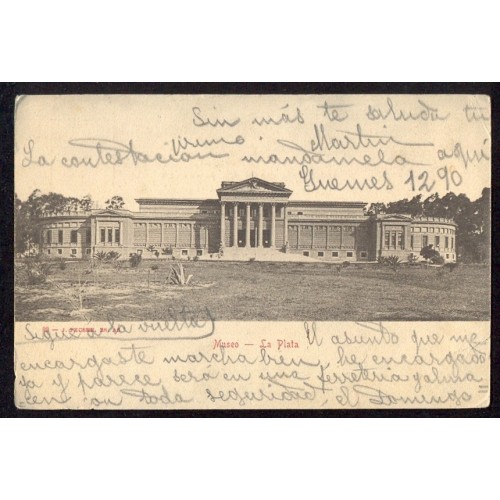 Sin más te saluda tu
primo Martin
La contestación mandamela aquí
Guemes 1290
Sigue a la vuelta
Museo — La Plata
El asunto que me
encargaste marcha bien, he encargado
ya y parece será en una ferreteria y alma-
cen con toda seguridad, el Domingo